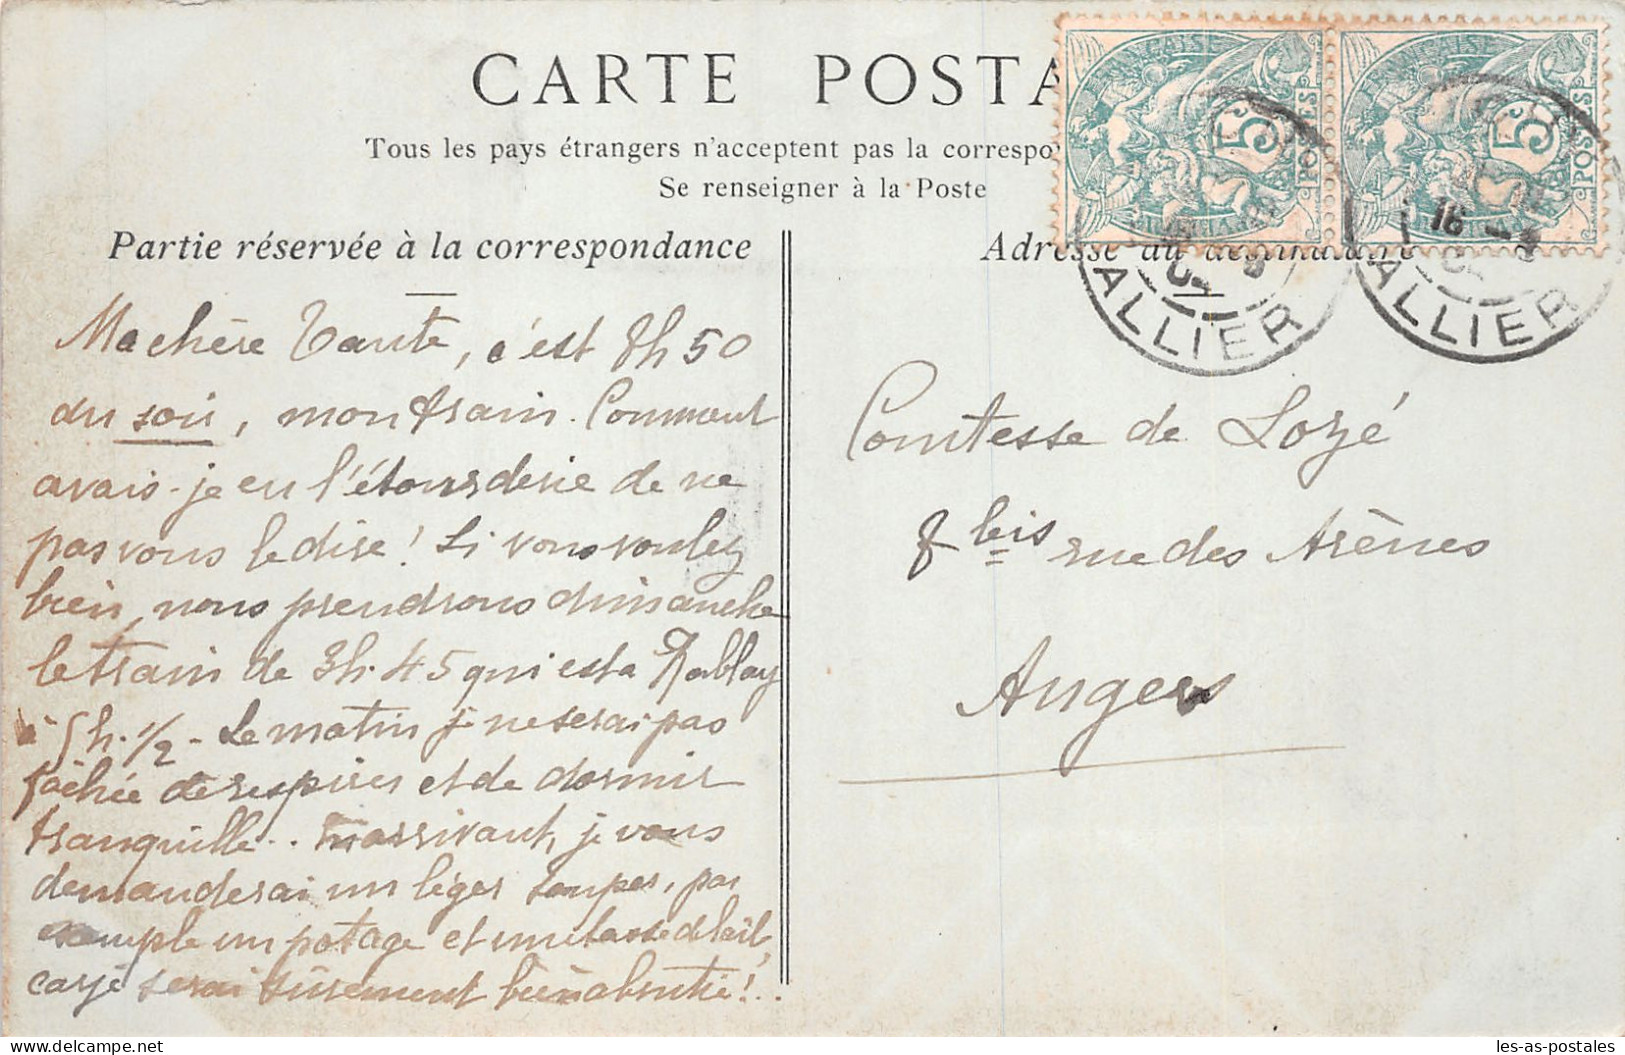 CARTE POSTA
Tous les pays étrangers n'acceptent pas la correspo
Se renseigner à la Poste
Partie réservée à la correspondance
Adresse du destinataire
FRANÇAISE
5c
POSTES
FRANÇAISE
5c
POSTES
ALLIER
16
ALLIER
Ma chère Tante, c'est 8h 50
du soir, mon train. Comment
avais-je eu l'étourderie de ne
pas vous le dire! Si vous voulez
bien, nous prendrons dimanche
le train de 3h.45 qui est a Rablay
à 5h.1/2 - Le matin je ne serai pas
fâchée de respirer et de dormir
tranquille.. En arrivant, je vous
demanderai un léger souper, par
exemple un potage et une tasse de lait,
car je serai sûrement bien abrutie!..
Comtesse de Lozé
8 bis rue des Arènes
Angers
les-as-postales